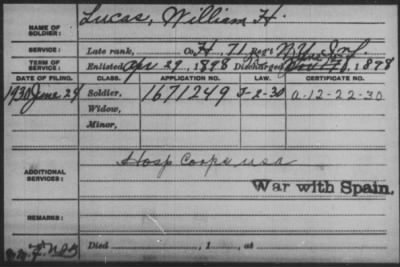 NAME OF SOLDIER: Lucas, William H.
SERVICE: Late rank, Co. H, 71 Reg't N.Y. Inf.
TERM OF SERVICE: Enlisted Apr 29, 1898 Discharged Nov 1898
DATE OF FILING. CLASS. APPLICATION NO. LAW. CERTIFICATE NO.
1930 June 24 Soldier, 1671249 J-2-30 A-12-22-30
Widow,
Minor,
ADDITIONAL SERVICES: Hosp Corps USA
War with Spain.
REMARKS:
Died , 1 , at